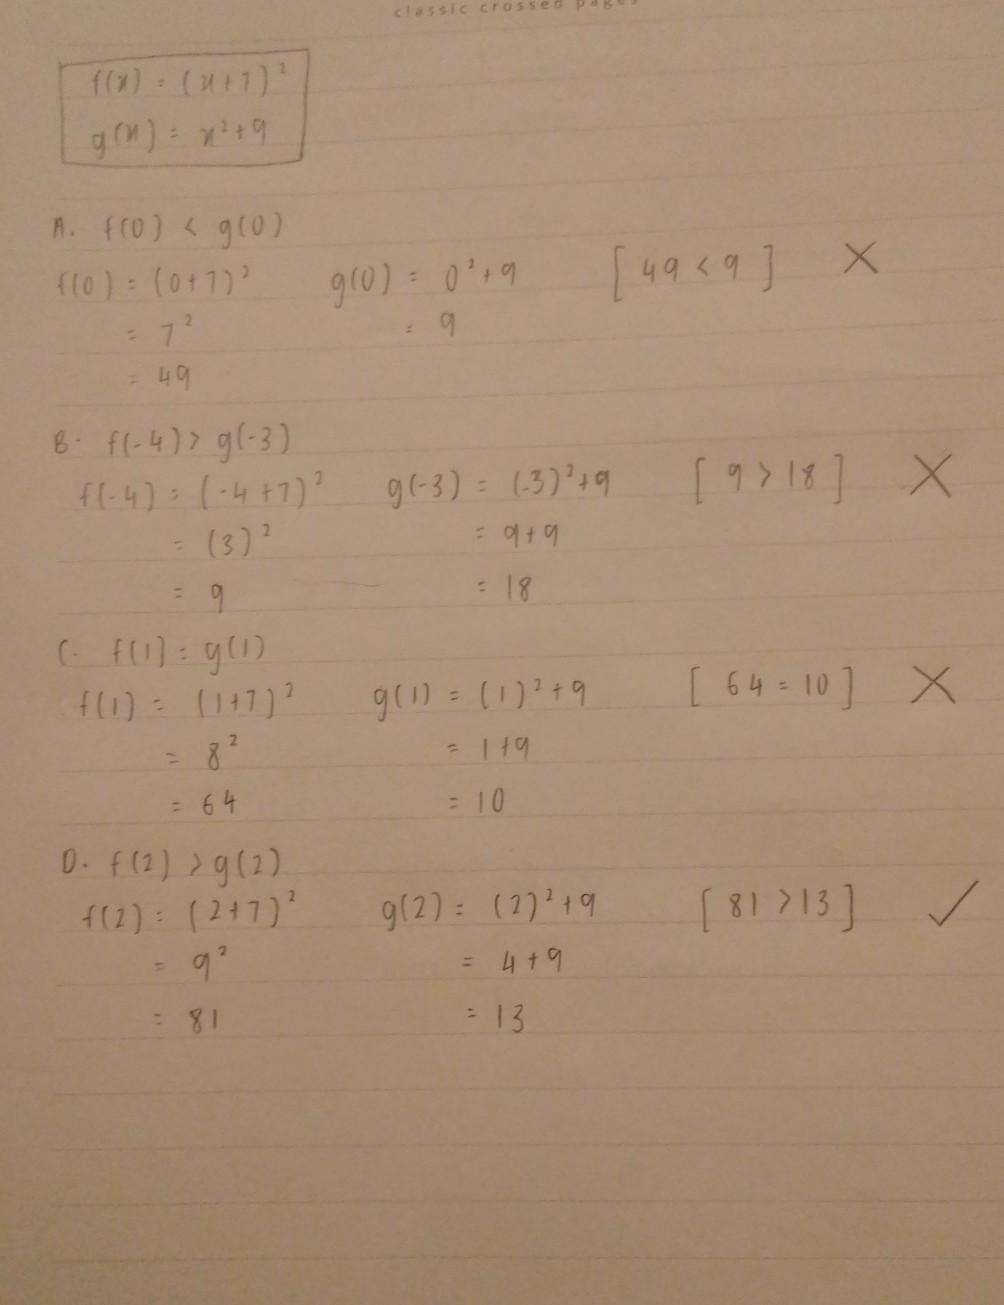 classic crossed pages
f(x) = (x+7)²
g(x) = x²+9
A. f(0) < g(0)
f(0) = (0+7)² g(0) = 0²+9 [49 < 9] ✗
= 7² = 9
= 49
B. f(-4) > g(-3)
f(-4) = (-4+7)² g(-3) = (-3)²+9 [9 > 18] ✗
= (3)² = 9+9
= 9 = 18
C. f(1) = g(1)
f(1) = (1+7)² g(1) = (1)²+9 [64 = 10] ✗
= 8² = 1+9
= 64 = 10
D. f(2) > g(2)
f(2) = (2+7)² g(2) = (2)²+9 [81 > 13] ✓
= 9² = 4+9
= 81 = 13